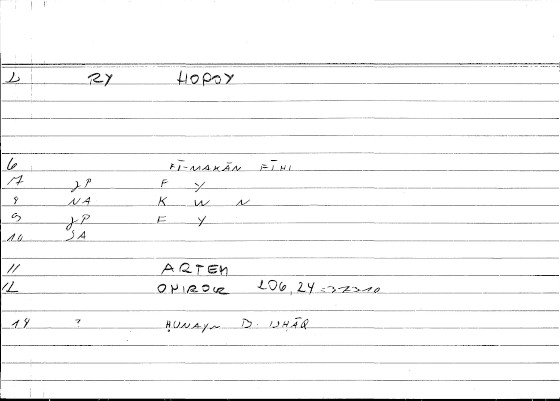 L RY HOPOY
6 FĪ-MAKĀN FĪHI
7 JP F Y
8 NA K W N
9 JP F Y
10 SA
11 ARTEM
12 ONIROCR 206,24
14 ? ḤUNAYN B. ISḤĀQ